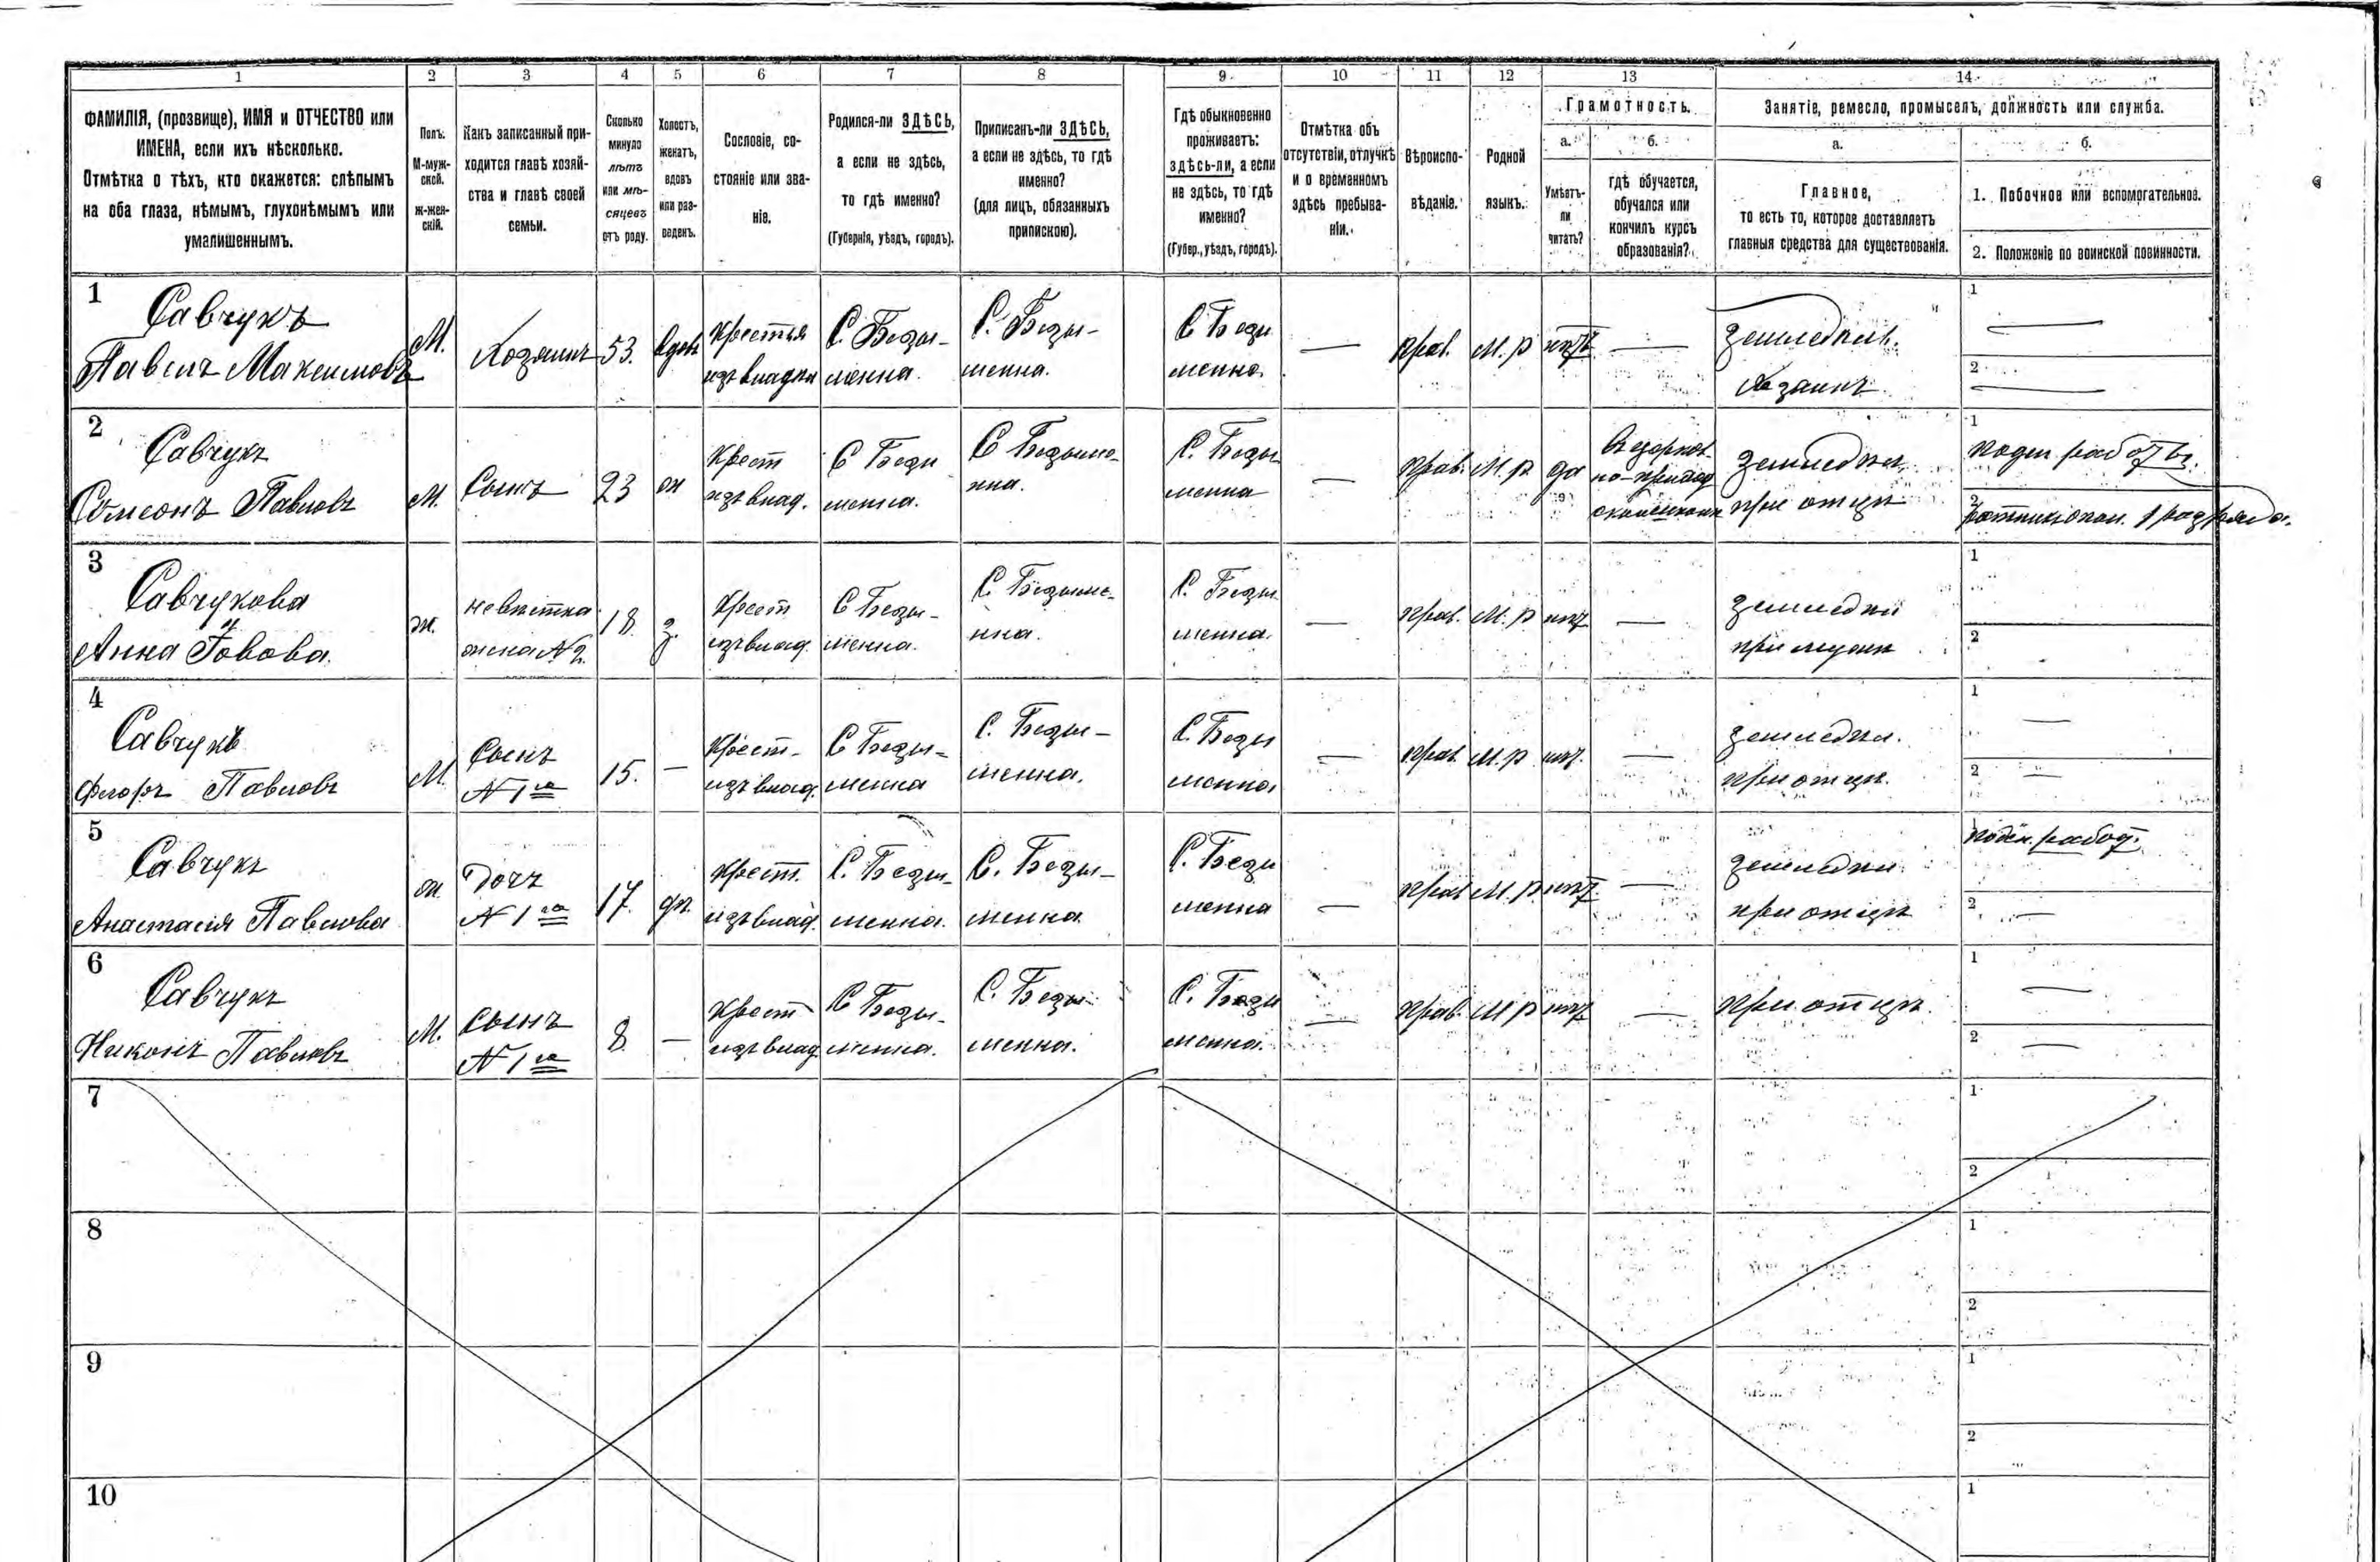 1 2 3 4 5 6 7 8 9 10 11 12 13 14
ФАМИЛІЯ, (прозвище), ИМЯ и ОТЧЕСТВО или
ИМЕНА, если ихъ нѣсколько.
Отмѣтка о тѣхъ, кто окажется: слѣпымъ
на оба глаза, нѣмымъ, глухонѣмымъ или
умалишеннымъ.
Полъ.
М-муж-
ской.
ж-жен-
скій.
Какъ записанный при-
ходится главѣ хозяй-
ства и главѣ своей
семьи.
Сколько
минуло
лѣтъ
или мѣ-
сяцевъ
отъ роду.
Холостъ,
женатъ,
вдовъ
или раз-
веденъ.
Сословіе, со-
стояніе или зва-
ніе.
Родился-ли ЗДѢСЬ,
а если не здѣсь,
то гдѣ именно?
(Губернія, уѣздъ, городъ).
Приписанъ-ли ЗДѢСЬ,
а если не здѣсь, то гдѣ
именно?
(для лицъ, обязанныхъ
припискою).
Гдѣ обыкновенно
проживаетъ:
здѣсь-ли, а если
не здѣсь, то гдѣ
именно?
(Губер., уѣздъ, городъ).
Отмѣтка объ
отсутствіи, отлучкѣ
и о временномъ
здѣсь пребыва-
ніи.
Вѣроиспо-
вѣданіе.
Родной
языкъ.
Грамотность.
а.
Умѣетъ-
ли
читать?
б.
гдѣ обучается,
обучался или
кончилъ курсъ
образованія?
Занятіе, ремесло, промыселъ, должность или служба.
а.
Главное,
то есть то, которое доставляетъ
главныя средства для существованія.
б.
1. Побочное или вспомогательное.
2. Положеніе по воинской повинности.
1
Савчукъ
Павелъ Максимовъ
М.
Хозяинъ
53.
вдов
Крестья
изъ владѣл
С. Безы-
менна.
С. Безы-
менна.
С Безы
менна.
—
прав.
М. р
нѣтъ
—
земледѣл.
Хозяинъ
1 —
2 —
2
Савчукъ
Симеонъ Павловъ
М.
Сынъ
23
ж
Крест
изъ влад.
С Безы
менна.
С Безыме-
нна.
С. Безы
менна
—
прав.
М. р.
да
въ церков-
но-приход
при отцѣ
земледѣл.
1
поден работы.
2
ратник опол. 1 разряда.
3
Савчукова
Анна Іовова.
ж.
невѣстка
жена № 2.
18
з.
Крест
изъ влад.
С Безы-
менна.
С. Безыме-
нна.
С. Безы
менна.
—
прав.
М. р
нѣт
—
земледѣл
при мужѣ
1
2
4
Савчукъ
Флоръ Павловъ
М.
Сынъ
№ 1го
15.
—
Крест-
изъ влад.
С Безы-
менна
С. Безы-
менна.
С. Безы
менна
—
прав.
М. р
нѣт.
—
земледѣл.
при отцѣ.
1 —
2 —
5
Савчукъ
Анастасія Павлова
ж
Дочъ
№ 1го
17.
дѣ.
Крест.
изъ влад.
С. Безы-
менна.
С. Безы-
менна.
С. Безы
менна
—
прав
М. р.
нѣт
—
земледѣл
при отцѣ
поден. работ.
2 —
6
Савчукъ
Никонъ Павловъ
М.
сынъ
№ 1го
8
—
Крест
изъ влад
С Безы-
менна.
С. Безы-
менна.
С. Безы
менна.
—
прав.
М р
нѣт
—
при отцѣ.
1 —
2 —
7
1
2
8
1
2
9
1
2
10
1